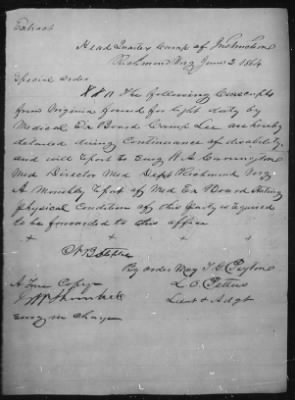 Extract
Head Quarters Camp of Instruction
Richmond Va June 3 1864
Special Order
The following Conscripts
from Virginia found for light duty by
Medical Ex Board Camp Lee are hereby
detailed during Continuance of disability
and will report to Surg W. A. Carrington
Med Director Med Dept Richmond Va
A Monthly report of Med Ex Board stating
physical Condition of this party is required
to be forwarded to this office
+ + + +
By order Maj T. G. Peyton
A True Copy
L. O.
Lieut & Adgt
Surg in Charge